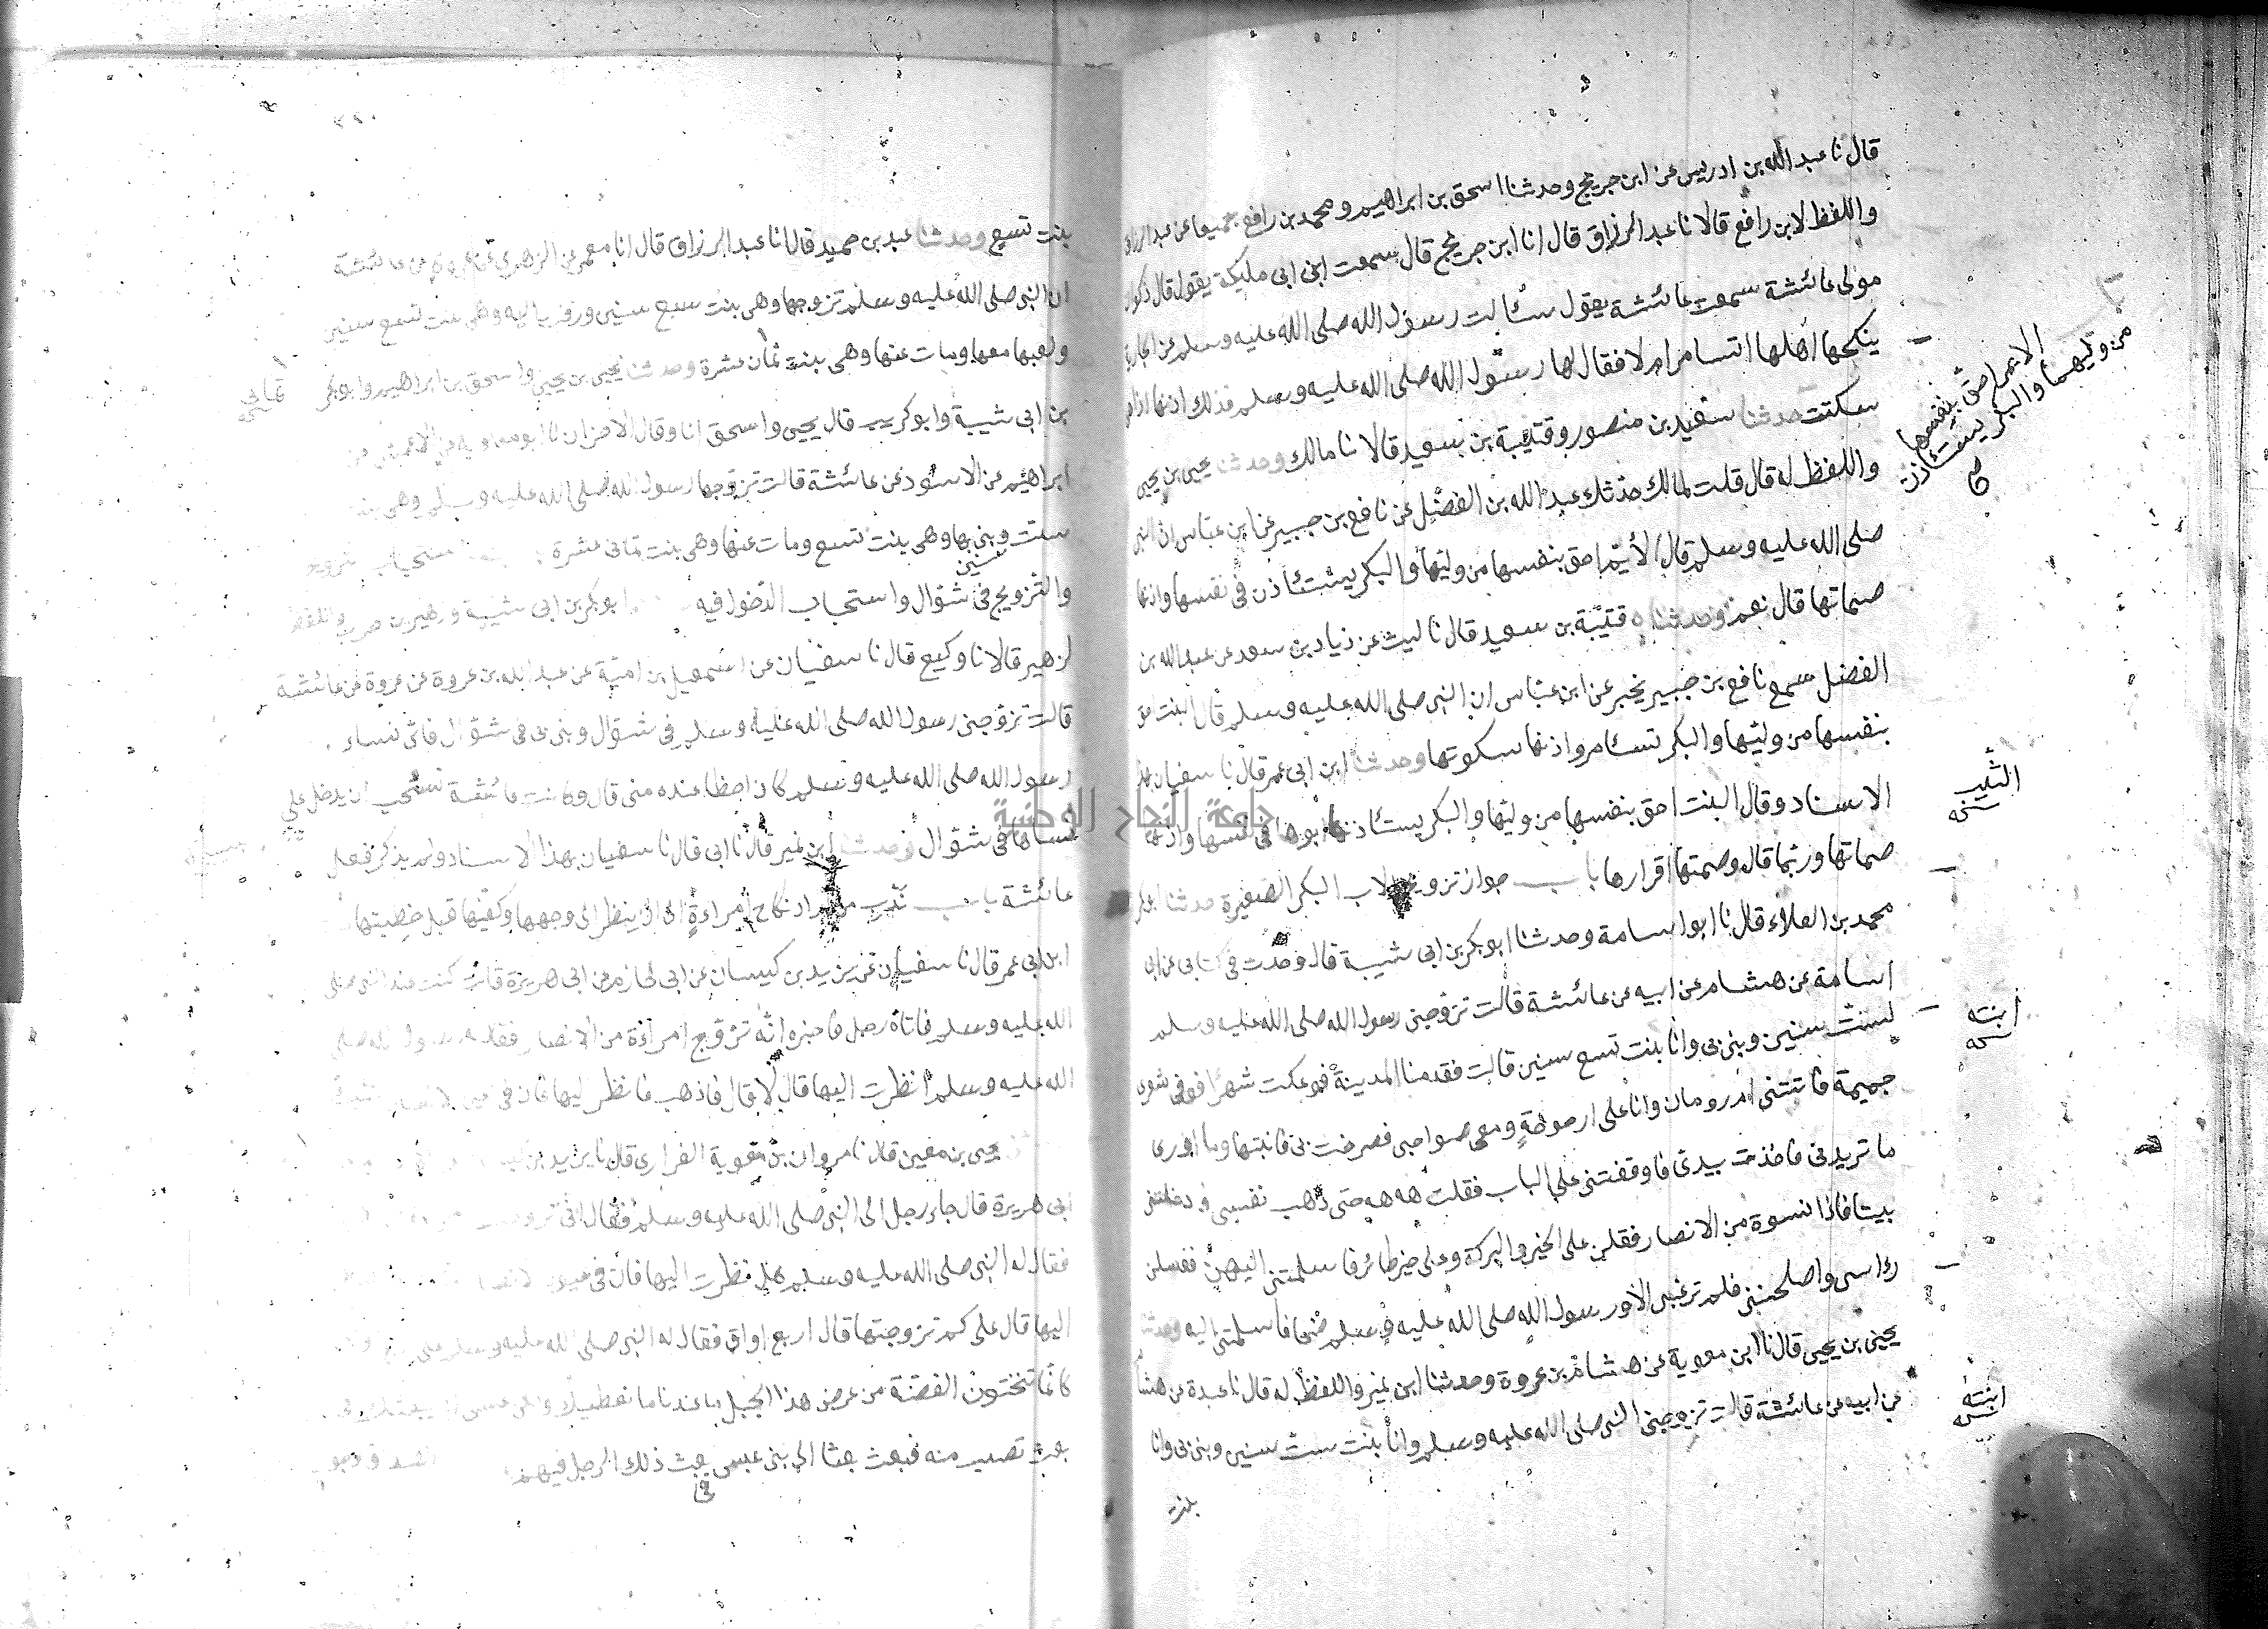 قال نا عبد الله بن ادريس عن ابن جريج وحدثنا اسحق بن ابراهيم ومحمد بن رافع جميعا عن عبد الرزاق
واللفظ لابن رافع قالا نا عبد الرزاق قال انا ابن جريج قال سمعت ابن ابى مليكة يقول قال ذكوان
مولى عائشة سمعت عائشة يقول سئالت رسول الله صلى الله عليه وسلم عن الجارية
ينكحها اهلها اتستامر ام لا فقال لها رسول الله صلى الله عليه وسلم فذلك اذنها اذا هى
سكتت حدثنا سعيد بن منصور وقتيبة بن سعيد قالا نا مالك وحدثنا يحيى بن يحيى
واللفظ له قال قلت لمالك حدثك عبد الله بن الفضل عن نافع بن جبير عن ابن عباس ان النبى
صلى الله عليه وسلم قال الأيّم احق بنفسها من وليّها والبكر يستئاذن فى نفسها واذنها
صماتها قال نعم وحدثنا قتيبة بن سعيد قال نا ليث عن زياد بن سعد عن عبد الله بن
الفضل سمع نافع بن جبير يخبر عن ابن عباس ان النبى صلى الله عليه وسلم قال البنت احق
بنفسها من وليّها والبكر تستامر واذنها سكوتها وحدثنا ابن ابى عمر قال نا سفيان بهذا
الاسناد وقال البنت احق بنفسها من وليّها والبكر يستئاذنها ابوها فى نفسها واذنها
صماتها وربّما قال وصمتها اقرارها باب جواز تزويج الاب البكر الصغيرة حدثنا ابو كريب
محمد بن العلاء قال نا ابو اسامة وحدثنا ابو بكر بن ابى شيبة قال وجدت فى كتابى عن ابى
اسامة عن هشام عن ابيه عن عائشة قالت تزوّجنى رسول الله صلى الله عليه وسلم
لستّ سنين وبنى بى وانا بنت تسع سنين قالت فقدمنا المدينة فوعكت شهرا فوفى شعرى
جميمة فاتتنى ام رومان وانا على ارجوحةٍ ومعى صواحبى فصرخت بى فاتيتها وما ادرى ما
ما تريد بى فاخذت بيدى فاوقفتنى على الباب فقلت هه هه حتى ذهب نفسى فادخلتنى
بيتا فاذا نسوة من الانصار فقلن على الخير والبركة وعلى خير طائر فاسلمتنى اليهنّ فغسلن
رؤاسى واصلحننى فلم ترعنى الا ورسول الله صلى الله عليه وسلم ضحى فاسلمتنى اليه وحدثنا
يحيى بن يحيى قال نا ابن معوية عن هشام بن عروة وحدثنا ابن نمير واللفظ له قال نا عبدة عن هشام
عن ابيه عن عائشة قالت تزوجنى النبى صلى الله عليه وسلم وانا بنت ستّ سنين وبنى بى وانا
بنت
الايم احق بنفسها
من وليها والبكر يستئاذن
الثيب
نسخه
ابنته
نسخه
ابنته
نسخه
بنت تسع وحدثنا عبد بن حميد قال انا عبد الرزاق قال انا معمر عن الزهرى عن عروة عن عائشة
ان النبى صلى الله عليه وسلم تزوجها وهى بنت سبع سنين وزفت اليه وهى بنت تسع سنين
ولعبها معها ومات عنها وهى بنت ثمان عشرة وحدثنا يحيى بن يحيى واسحق بن ابراهيم وابو بكر
بن ابى شيبة وابو كريب قال يحيى واسحق انا وقال الاخران نا ابو معاوية عن الاعمش عن
ابراهيم عن الاسود عن عائشة قالت تزوّجها رسول الله صلى الله عليه وسلم وهى بنت
ستّ وبنى بها وهى بنت تسع ومات عنها وهى بنت ثمانى عشرة استحباب تزوج
والتزويج فى شوّال واستحباب الدخول فيه ابو بكر بن ابى شيبة وزهير بن حرب واللفظ
لزهير قالا نا وكيع قال نا سفيان عن اسمعيل بن اميّة عن عبد الله بن عروة عن عروة عن عائشة
قالت تزوّجنى رسول الله صلى الله عليه وسلم فى شوّال وبنى بى فى شوّال فائّ نساء
رسول الله صلى الله عليه وسلم كان احظا عنده منى قال وكانت عائشة تستحب ان يدخل على
نساها فى شوّال وحدثنا ابن نمير قال نا ابى قال نا سفيان بهذا الاسناد ولم يذكر فعل
عائشة باب ندب من اراد نكاح امراءةٍ الى ان ينظر الى وجهها وكفيها قبل خطبتها
ابن ابى عمر قال نا سفيان عن يزيد بن كيسان عن ابى حازم عن ابى هريرة قال كنت عند النبى صلى
الله عليه وسلم فاتاه رجل فاخبره انّه تزوّج امراءة من الانصار فقال له رسول الله صلى
الله عليه وسلم انظرت اليها قال لا قال فاذهب فانظر اليها فان فى اعين الانصار شيئا
يحيى بن معين قال نا مروان بن معوية الفزارى قال نا يزيد بن
ابى هريرة قال جاء رجل الى النبى صلى الله عليه وسلم فقال انى تزوجت
فقال له النبى صلى الله عليه وسلم هل نظرت اليها فان فى عيون الانصار
اليها قال على كم تزوجتها قال اربع اواق فقال له النبى صلى الله عليه وسلم على
كانما تنحتون الفضة من عرض هذا الجبل ما عندنا ما نعطيك ولكن عسى ان نبعثك فى
بعث تصيب منه فبعث بعثا الى بنى عبس بعث ذلك الرجل فيهم
سنين
فى
ثمانى
نسخه
جامعة النجاح الوطنية